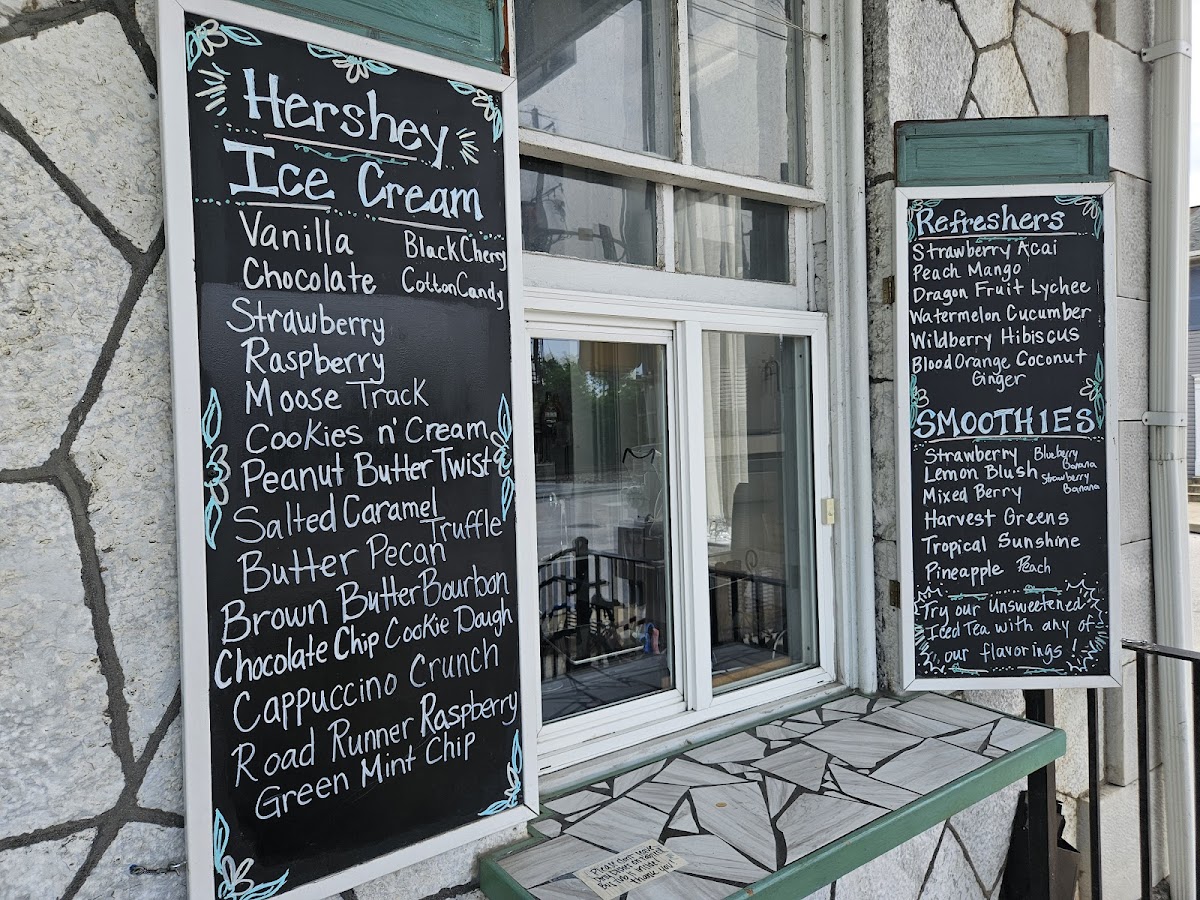 Hershey
Ice Cream
Vanilla
Black Chery
Chocolate
Cotton Candy
Strawberry
Raspberry
Moose Track
Cookies n' Cream
Peanut Butter Twist
Salted Caramel
Truffle
Butter Pecan
Brown Butter Bourbon
Chocolate Chip Cookie Dough
Cappuccino Crunch
Road Runner Raspberry
Green Mint Chip
Refreshers
Strawberry Acai
Peach Mango
Dragon Fruit Lychee
Watermelon Cucumber
Wildberry Hibiscus
Blood Orange Coconut
Ginger
SMOOTHIES
Strawberry
Blueberry
Banana
Lemon Blush
Strawberry
Banana
Mixed Berry
Harvest Greens
Tropical Sunshine
Pineapple
Peach
Try our Unsweetened
Iced Tea with any of
our flavorings!
thank you